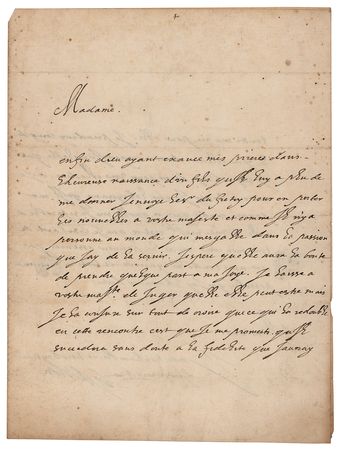 Madame.
enfin dieu ayant exaucé mes prieres dans
l'heureuse naissance d'un fils qu'il luy a pleu de
me donner J'envoye le sr du pour en porter
les nouvelles a vostre majesté et comme il n'y a
personne au monde qui m'esgalle dans la passion
que J'ay de la servir. J'espere que elle aura la bonté
de prendre quelque part a ma Joye. Je laisse a
vostre majté de Juger quelle elle peut estre mais
Je la asseure sur tout de croire que ce qui la redouble
en cette rencontre c'est que Je me promets qu'il
succedera sans doute a la fidelité que J'auray